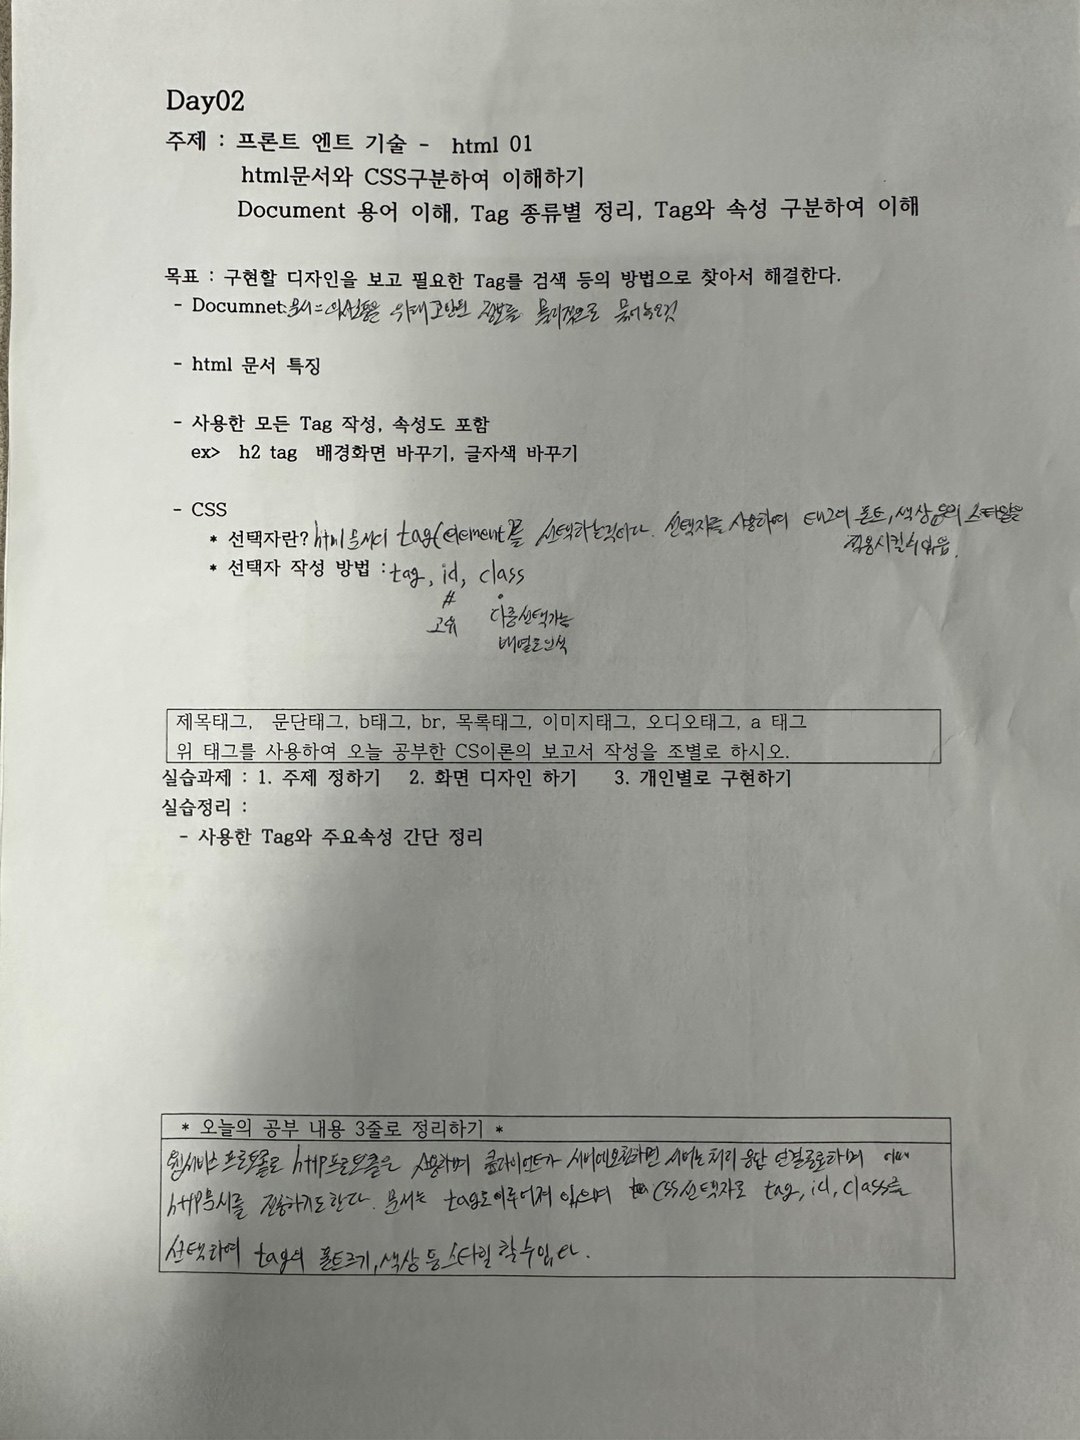 Day02
주제 : 프론트 엔트 기술 - html 01
html문서와 CSS구분하여 이해하기
Document 용어 이해, Tag 종류별 정리, Tag와 속성 구분하여 이해
목표 : 구현할 디자인을 보고 필요한 Tag를 검색 등의 방법으로 찾아서 해결한다.
- Documnet:문서는 의사소통을 위해 고안된 정보를 물리적으로 묶어놓은것
- html 문서 특징
- 사용한 모든 Tag 작성, 속성도 포함
ex> h2 tag 배경화면 바꾸기, 글자색 바꾸기
- CSS
* 선택자란? html 문서의 tag(element)를 선택하는것이다. 선택자를 사용하여 태그의 폰트, 색상 등의 스타일을
적용시킬수있음.
* 선택자 작성 방법 : tag, id, class
# .
고유 다중선택가능
배열로인식
제목태그, 문단태그, b태그, br, 목록태그, 이미지태그, 오디오태그, a 태그
위 태그를 사용하여 오늘 공부한 CS이론의 보고서 작성을 조별로 하시오.
실습과제 : 1. 주제 정하기 2. 화면 디자인 하기 3. 개인별로 구현하기
실습정리 :
- 사용한 Tag와 주요속성 간단 정리
* 오늘의 공부 내용 3줄로 정리하기 *
웹서비스 프로토콜로 http프로토콜은 사용하며 클라이언트가 서버에요청하면 서버는 처리 응답 연결종료하며 이때
http문서를 전송하기도한다. 문서는 tag로이루어져 있으며 CSS선택자로 tag, id, class를
선택하여 tag의 폰트크기, 색상 등 스타일 할수있다.